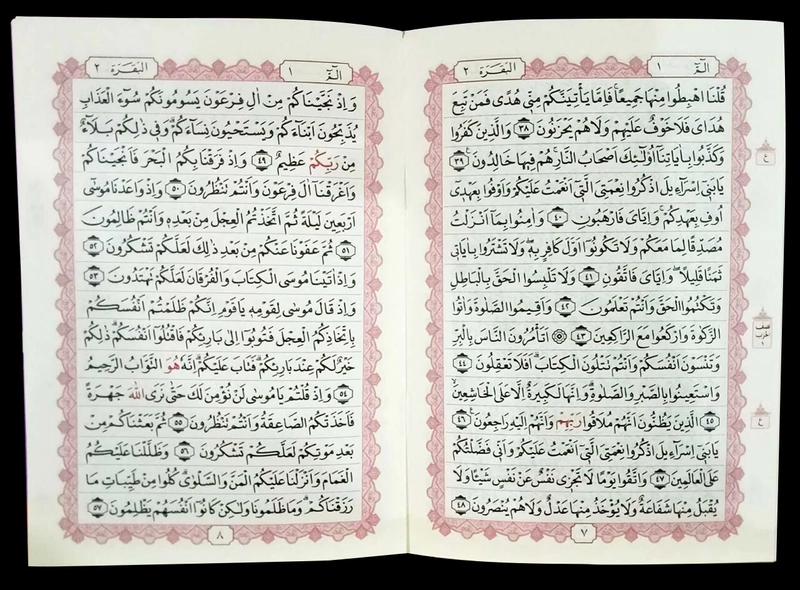 ١ الٓمٓ
البقرة ٢
قُلْنَا اهْبِطُوا مِنْهَا جَمِيعًاۚ فَاِمَّا يَأْتِيَنَّكُمْ مِنّ۪ي هُدًى فَمَنْ تَبِعَ
هُدَايَ فَلَا خَوْفٌ عَلَيْهِمْ وَلَا هُمْ يَحْزَنُونَ ٣٨ وَالَّذ۪ينَ كَفَرُوا
وَكَذَّبُوا بِاٰيَاتِنَٓا اُو۬لٰٓئِكَ اَصْحَابُ النَّارِۚ هُمْ ف۪يهَا خَالِدُونَ ٣٩
يَابَن۪ٓي اِسْرَٓاء۪يلَ اذْكُرُوا نِعْمَتِيَ الَّت۪ٓي اَنْعَمْتُ عَلَيْكُمْ وَاَوْفُوا بِعَهْد۪ٓي
اُو۫فِ بِعَهْدِكُمْۚ وَاِيَّايَ فَارْهَبُونِ ٤٠ وَاٰمِنُوا بِمَٓا اَنْزَلْتُ
مُصَدِّقًا لِمَا مَعَكُمْ وَلَا تَكُونُٓوا اَوَّلَ كَافِرٍ بِه۪ۖ وَلَا تَشْتَرُوا بِاٰيَات۪ي
ثَمَنًا قَل۪يلًاۘ وَاِيَّايَ فَاتَّقُونِ ٤١ وَلَا تَلْبِسُوا الْحَقَّ بِالْبَاطِلِ
وَتَكْتُمُوا الْحَقَّ وَاَنْتُمْ تَعْلَمُونَ ٤٢ وَاَق۪يمُوا الصَّلٰوةَ وَاٰتُوا
الزَّكٰوةَ وَارْكَعُوا مَعَ الرَّاكِع۪ينَ ٤٣ اَتَأْمُرُونَ النَّاسَ بِالْبِرِّ
وَتَنْسَوْنَ اَنْفُسَكُمْ وَاَنْتُمْ تَتْلُونَ الْكِتَابَۜ اَفَلَا تَعْقِلُونَ ٤٤
وَاسْتَع۪ينُوا بِالصَّبْرِ وَالصَّلٰوةِۜ وَاِنَّهَا لَكَب۪يرَةٌ اِلَّا عَلَى الْخَاشِع۪ينَۙ
٤٥ الَّذ۪ينَ يَظُنُّونَ اَنَّهُمْ مُلَاقُوا رَبِّهِمْ وَاَنَّهُمْ اِلَيْهِ رَاجِعُونَ۟ ٤٦
يَابَن۪ٓي اِسْرَٓاء۪يلَ اذْكُرُوا نِعْمَتِيَ الَّت۪ٓي اَنْعَمْتُ عَلَيْكُمْ وَاَنّ۪ي فَضَّلْتُكُمْ
عَلَى الْعَالَم۪ينَ ٤٧ وَاتَّقُوا يَوْمًا لَا تَجْز۪ي نَفْسٌ عَنْ نَفْسٍ شَيْـًٔا وَلَا
يُقْبَلُ مِنْهَا شَفَاعَةٌ وَلَا يُؤْخَذُ مِنْهَا عَدْلٌ وَلَا هُمْ يُنْصَرُونَ ٤٨
٧
ع
نصف
حزب
١
ع
١ الٓمٓ
البقرة ٢
وَاِذْ نَجَّيْنَاكُمْ مِنْ اٰلِ فِرْعَوْنَ يَسُومُونَكُمْ سُٓوءَ الْعَذَابِ
يُذَبِّحُونَ اَبْنَٓاءَكُمْ وَيَسْتَحْيُونَ نِسَٓاءَكُمْۜ وَف۪ي ذٰلِكُمْ بَلَٓاءٌ
مِنْ رَبِّكُمْ عَظ۪يمٌ ٤٩ وَاِذْ فَرَقْنَا بِكُمُ الْبَحْرَ فَاَنْجَيْنَاكُمْ
وَاَغْرَقْنَٓا اٰلَ فِرْعَوْنَ وَاَنْتُمْ تَنْظُرُونَ ٥٠ وَاِذْ وٰعَدْنَا مُوسٰٓى
اَرْبَع۪ينَ لَيْلَةً ثُمَّ اتَّخَذْتُمُ الْعِجْلَ مِنْ بَعْدِه۪ وَاَنْتُمْ ظَالِمُونَ
٥١ ثُمَّ عَفَوْنَا عَنْكُمْ مِنْ بَعْدِ ذٰلِكَ لَعَلَّكُمْ تَشْكُرُونَ ٥٢
وَاِذْ اٰتَيْنَا مُوسَى الْكِتَابَ وَالْفُرْقَانَ لَعَلَّكُمْ تَهْتَدُونَ ٥٣
وَاِذْ قَالَ مُوسٰى لِقَوْمِه۪ يَاقَوْمِ اِنَّكُمْ ظَلَمْتُمْ اَنْفُسَكُمْ
بِاتِّخَاذِكُمُ الْعِجْلَ فَتُوبُٓوا اِلٰى بَارِئِكُمْ فَاقْتُلُٓوا اَنْفُسَكُمْۜ ذٰلِكُمْ
خَيْرٌ لَكُمْ عِنْدَ بَارِئِكُمْۜ فَتَابَ عَلَيْكُمْۜ اِنَّهُ هُوَ التَّوَّابُ الرَّح۪يمُ
٥٤ وَاِذْ قُلْتُمْ يَا مُوسٰى لَنْ نُؤْمِنَ لَكَ حَتّٰى نَرَى اللّٰهَ جَهْرَةً
فَاَخَذَتْكُمُ الصَّاعِقَةُ وَاَنْتُمْ تَنْظُرُونَ ٥٥ ثُمَّ بَعَثْنَاكُمْ مِنْ
بَعْدِ مَوْتِكُمْ لَعَلَّكُمْ تَشْكُرُونَ ٥٦ وَظَلَّلْنَا عَلَيْكُمُ
الْغَمَامَ وَاَنْزَلْنَا عَلَيْكُمُ الْمَنَّ وَالسَّلْوٰىۜ كُلُوا مِنْ طَيِّبَاتِ مَا
رَزَقْنَاكُمْۜ وَمَا ظَلَمُونَا وَلٰكِنْ كَانُٓوا اَنْفُسَهُمْ يَظْلِمُونَ ٥٧
٨